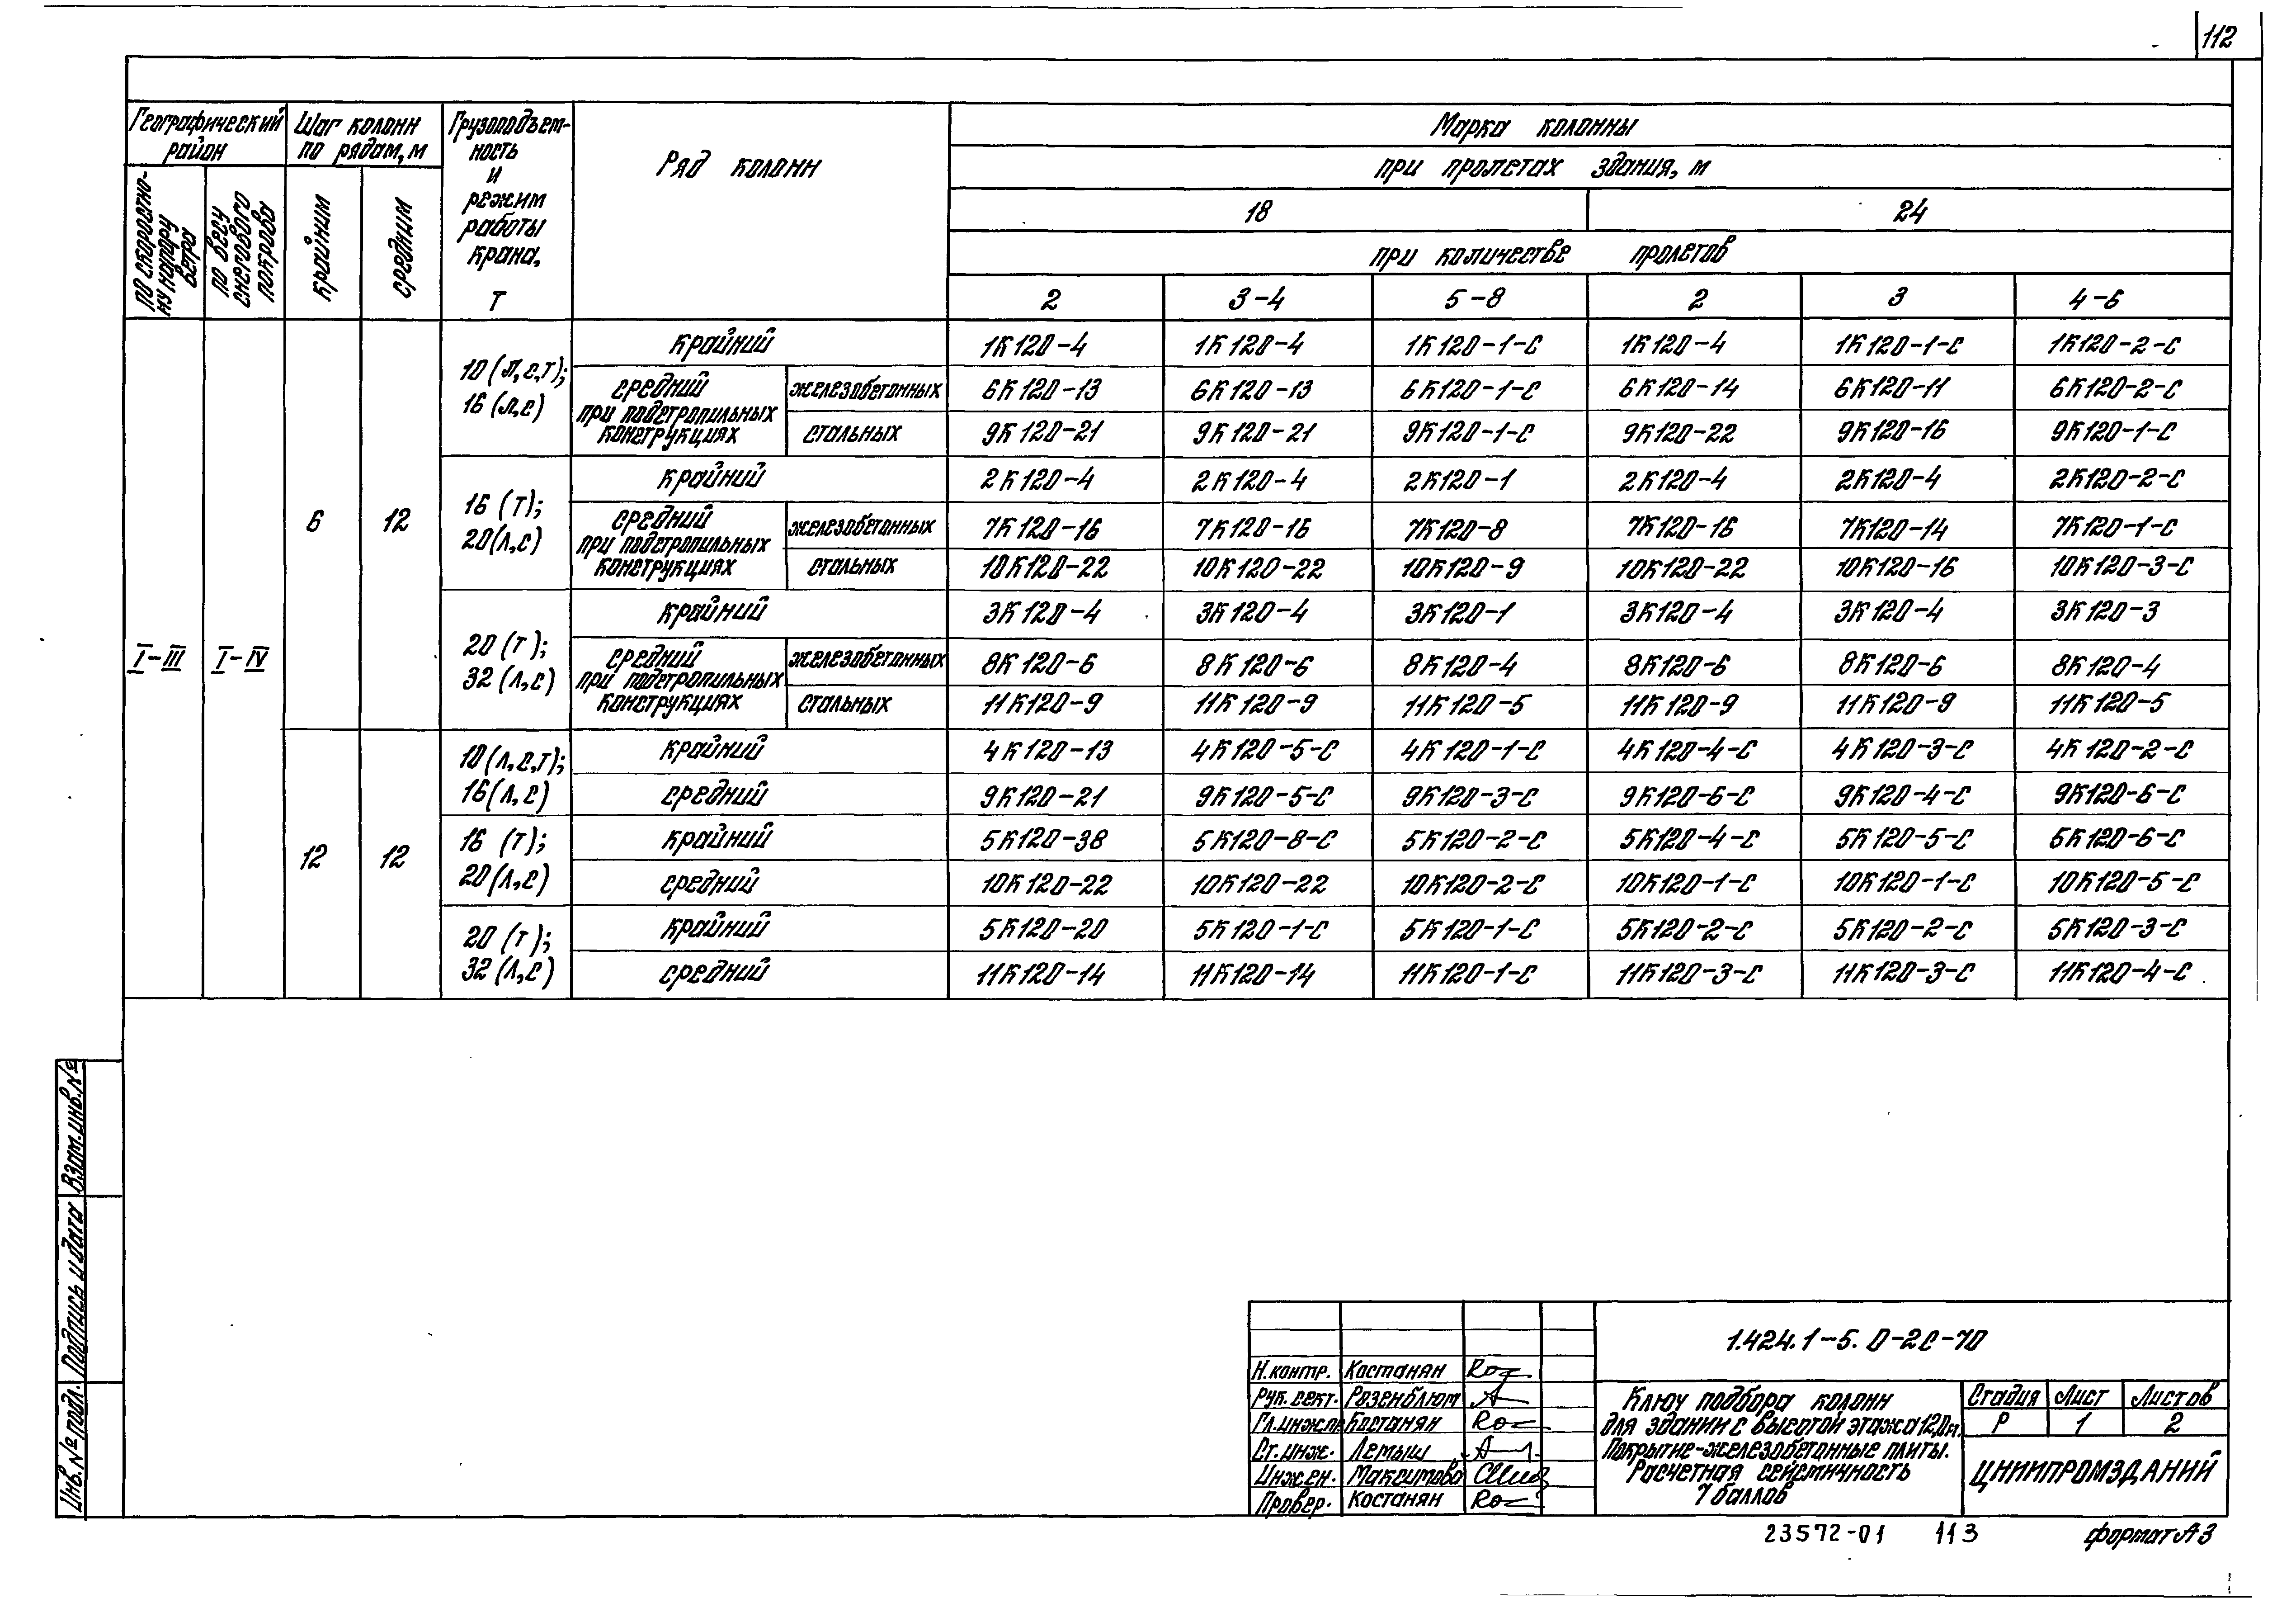 112
Географический район | Шаг колонн по рядам, м | Грузоподъем-ность и режим работы крана, т | Ряд колонн | Марка колонны
при пролетах здания, м
18 | 24
по скоростно-му напору ветра | по весу снегового покрова | крайним | средним | при количестве пролетов
2 | 3-4 | 5-8 | 2 | 3 | 4-6
I-III | I-IV | 6 | 12
10 (л,с,т); 16 (л,с)
крайний | 1К120-4 | 1К120-4 | 1К120-1-С | 1К120-4 | 1К120-1-С | 1К120-2-С
средний при подстропильных конструкциях | железобетонных | 6К120-13 | 6К120-13 | 6К120-1-С | 6К120-14 | 6К120-11 | 6К120-2-С
стальных | 9К120-21 | 9К120-21 | 9К120-1-С | 9К120-22 | 9К120-16 | 9К120-1-С
16 (т); 20(л,с)
крайний | 2К120-4 | 2К120-4 | 2К120-1 | 2К120-4 | 2К120-4 | 2К120-2-С
средний при подстропильных конструкциях | железобетонных | 7К120-16 | 7К120-16 | 7К120-8 | 7К120-16 | 7К120-14 | 7К120-1-С
стальных | 10К120-22 | 10К120-22 | 10К120-9 | 10К120-22 | 10К120-16 | 10К120-3-С
20 (т); 32 (л,с)
крайний | 3К120-4 | 3К120-4 | 3К120-1 | 3К120-4 | 3К120-4 | 3К120-3
средний при подстропильных конструкциях | железобетонных | 8К120-6 | 8К120-6 | 8К120-4 | 8К120-6 | 8К120-6 | 8К120-4
стальных | 11К120-9 | 11К120-9 | 11К120-5 | 11К120-9 | 11К120-9 | 11К120-5
12 | 12
10(л,с,т); 16(л,с)
крайний | 4К120-13 | 4К120-5-С | 4К120-1-С | 4К120-4-С | 4К120-3-С | 4К120-2-С
средний | 9К120-21 | 9К120-5-С | 9К120-3-С | 9К120-6-С | 9К120-4-С | 9К120-6-С
16 (т); 20(л,с)
крайний | 5К120-38 | 5К120-8-С | 5К120-2-С | 5К120-4-С | 5К120-5-С | 5К120-6-С
средний | 10К120-22 | 10К120-22 | 10К120-2-С | 10К120-1-С | 10К120-1-С | 10К120-5-С
20 (т); 32 (л,с)
крайний | 5К120-20 | 5К120-1-С | 5К120-1-С | 5К120-2-С | 5К120-2-С | 5К120-3-С
средний | 11К120-14 | 11К120-14 | 11К120-1-С | 11К120-3-С | 11К120-3-С | 11К120-4-С
Инв.№ подл. | Подпись и дата | Взам.инв.№
1.424.1-5.0-2С-70
Н.контр. Костанян
Рук.сект. Розенблюм
Гл.инж.пр. Костанян
Ст.инж. Лемыш
Инжен. Максимова
Провер. Костанян
Ключ подбора колонн
для зданий с высотой этажа 12,0м.
Покрытие-железобетонные плиты.
Расчетная сейсмичность
7 баллов
Стадия | Лист | Листов
Р | 1 | 2
ЦНИИПРОМЗДАНИЙ
23572-01 113 формат А3